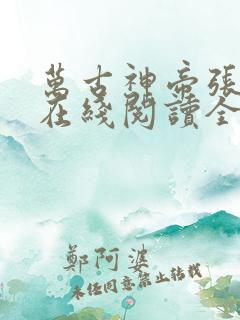 萬古神帝張
在綫閱讀全
鄭阿婆
未經同意禁止轉載